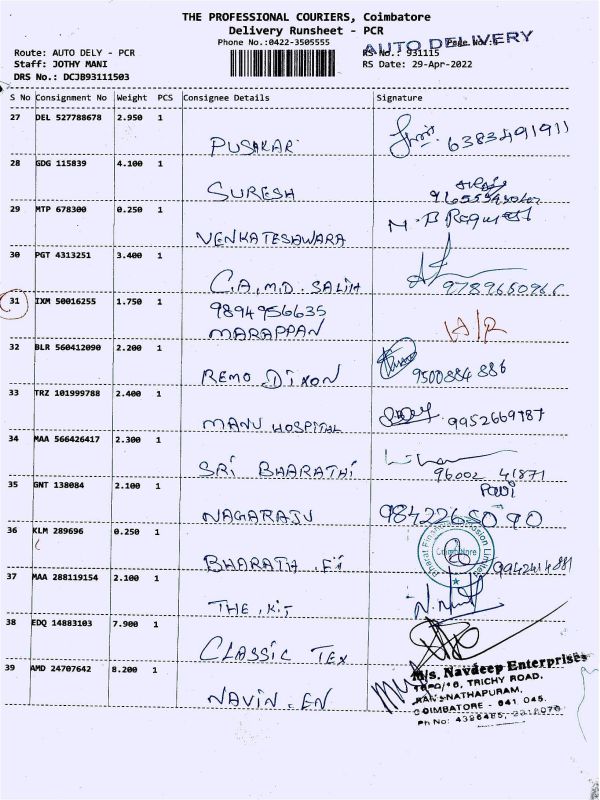 THE PROFESSIONAL COURIERS, Coimbatore
Delivery Runsheet - PCR
Phone No.:0422-3505555
AUTO DELIVERY
Route: AUTO DELY - PCR
RS No.: 931115
Staff: JOTHY MANI
RS Date: 29-Apr-2022
DRS No.: DCJB93111503
S No Consignment No Weight PCS Consignee Details Signature
27 DEL 527788678 2.950 1
PUSHKAR 6383491911
28 GDG 115839 4.100 1
SURESH
29 MTP 678300 0.250 1
VENKATESHWARA
30 PGT 4313251 3.400 1
C.A.M.D. SALIH 9789650966
31 IXM 50016255 1.750 1
9894956635
MARAPPAN
32 BLR 560412090 2.200 1
REMO DIXON 9500884886
33 TRZ 101999788 2.400 1
MANU HOSPITAL 9952669787
34 MAA 566426417 2.300 1
SRI BHARATHI 96002 41871
35 GNT 138084 2.100 1
NAGARAJU 9842265090
36 KLM 289696 0.250 1
BHARATH . Fi 9942414881
Coimbatore
37 MAA 288119154 2.100 1
THE . KIT
38 EDQ 14883103 7.900 1
CLASSIC TEX
39 AMD 24707642 8.200 1
NAVIN . EN
M/s. Navdeep Enterprises
TRICHY ROAD,
RAMANATHAPURAM,
COIMBATORE - 641 045.